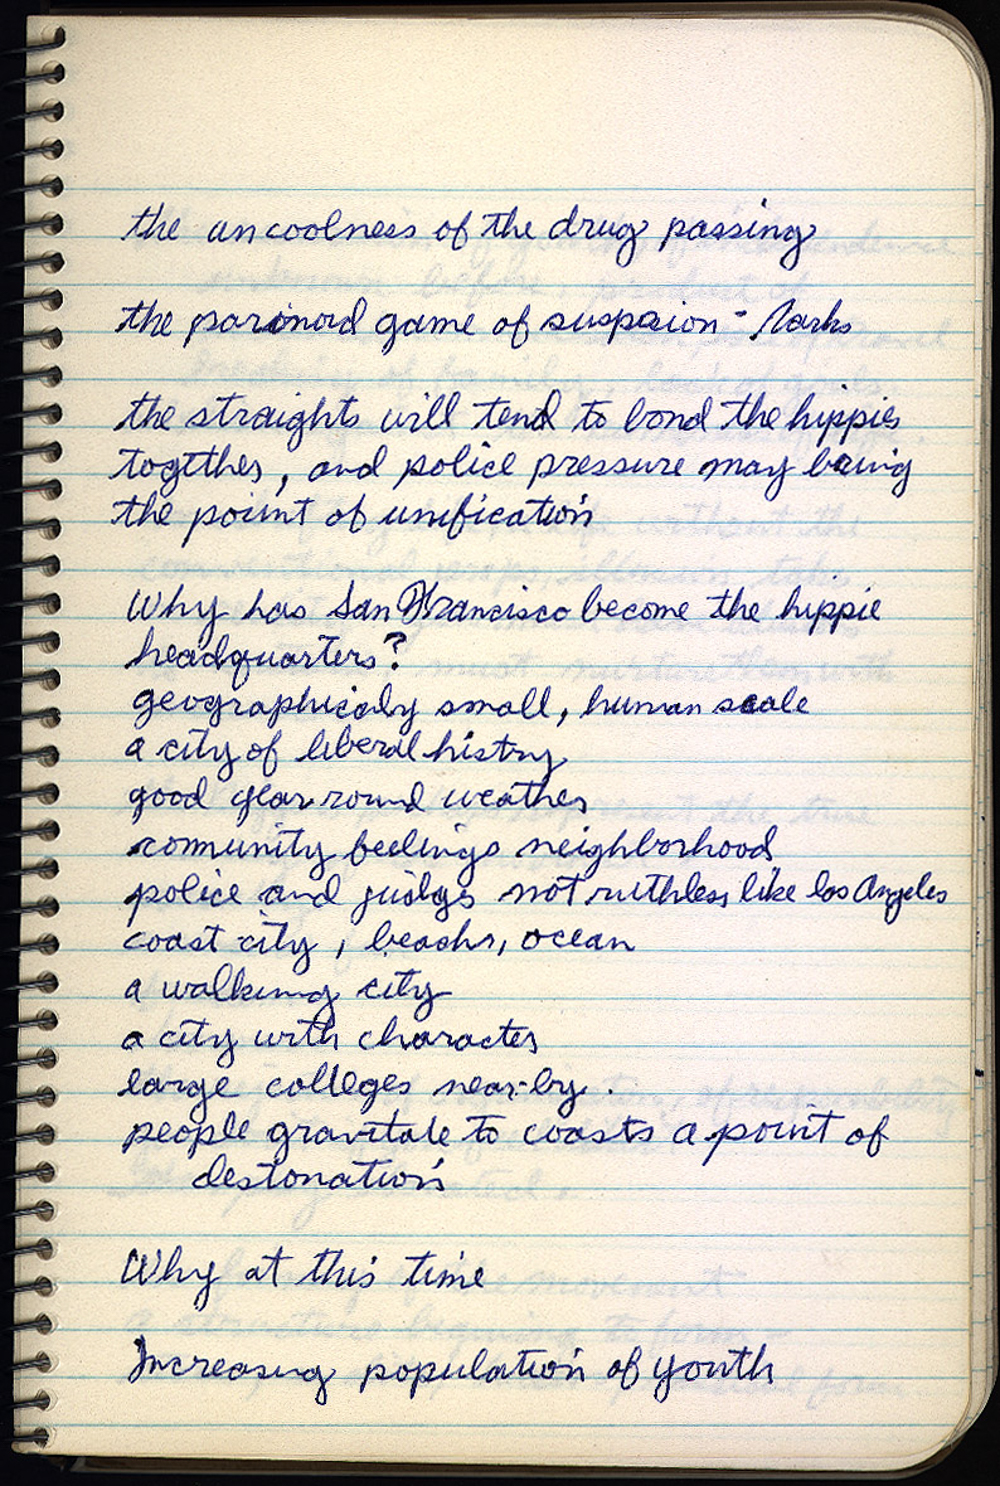 the uncoolness of the drug passing
the paranoid game of suspcion - Narks
the straights will tend to bond the hippies
togtther, and police pressure may bring
the point of unification
Why has San Francisco become the hippie
headquarters?
geographicaly small, human scale
a city of liberal histry
good year round weather
comunity feelings neighborhood
police and judges not ruthless like los Angeles
coast city, beachs, ocean
a walking city
a city with character
large colleges near-by.
people gravitate to coasts a point of
destonation
Why at this time
Increasing population of youth